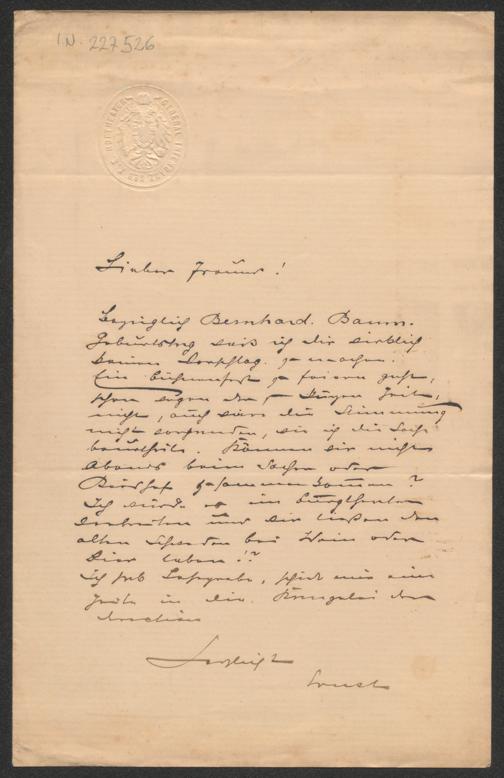 I.N. 227526
GENERAL INTENDANZ DER K.K. HOFTHEATER
Lieber Freund!
Bezüglich Bernhard Baum.
Geburtstag weiß ich dir wirklich
keinen Vorschlag zu machen.
Ein Bühnenfest zu feiern geht,
schon wegen der kurzen Zeit,
nicht, auch wäre die Stimmung
nicht vorhanden, wie ich die Sache
beurtheile. Können wir nicht
Abends beim Sacher oder
zusammen kommen?
Ich würde es im Burgtheater
verbreiten und wir ließen den
alten Schweden bei Wein oder
Bier leben!?
Ich hab Leseprobe, schick mir eine
Zeile in die Kanzelei der
Direction
Herzlichst
Ernst